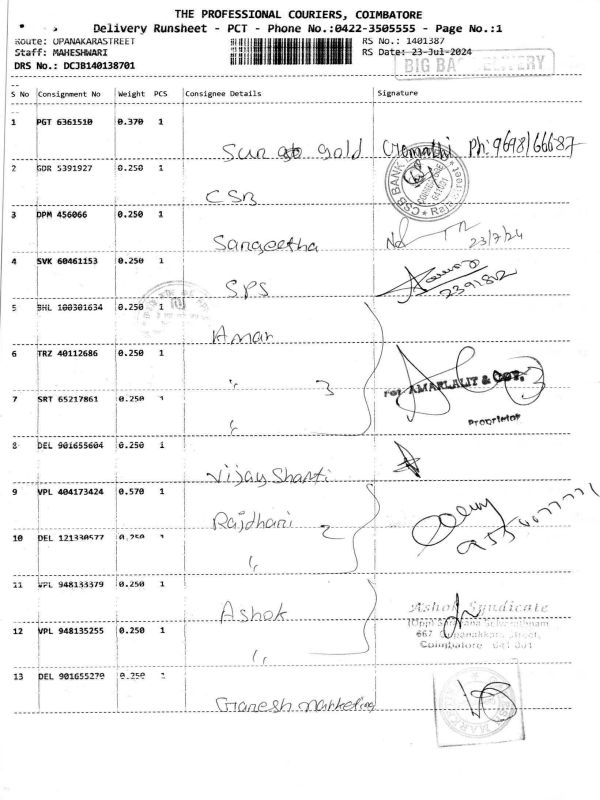 THE PROFESSIONAL COURIERS, COIMBATORE
Delivery Runsheet - PCT - Phone No.:0422-3505555 - Page No.:1
Route: UPANAKARASTREET RS No.: 1401387
Staff: MAHESHWARI RS Date: 23-Jul-2024
DRS No.: DCJB140138701
BIG BAG DELIVERY
S No Consignment No Weight PCS Consignee Details Signature
1 PGT 6361510 0.370 1
Sun gold Ph: 9698166687
2 GDR 5391927 0.250 1
CSB
CSB BANK
3 DPM 456066 0.250 1
Sangeetha 23/7/24
4 SVK 60461153 0.250 1
SPS
5 BHL 100301634 0.250 1
Amar
6 TRZ 40112686 0.250 1
" 3
for AMARLALIT & COY.
7 SRT 65217861 0.250 1
"
Proprietor
8 DEL 901655604 0.250 1
Vijay Shanti
9 VPL 404173424 0.570 1
Rajdhani 2
10 DEL 121330577 0.250 1
"
11 VPL 948133379 0.250 1
Ashok
Ashok Syndicate
12 VPL 948135255 0.250 1
667, Uppanakkara Street,
Coimbatore - 641 001
"
13 DEL 901655270 0.250 1
Ganesh marketing